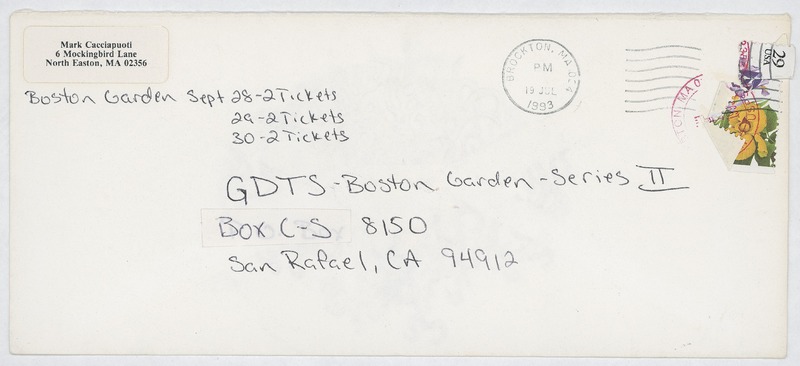 Mark Cacciapuoti
6 Mockingbird Lane
North Easton, MA 02356
BROCKTON, MA 024
PM
19 JUL
1993
29
USA
Boston Garden Sept 28-2 Tickets
29-2 Tickets
30-2 Tickets
GDTS-Boston Garden-Series II
Box C-S 8150
San Rafael, CA 94912